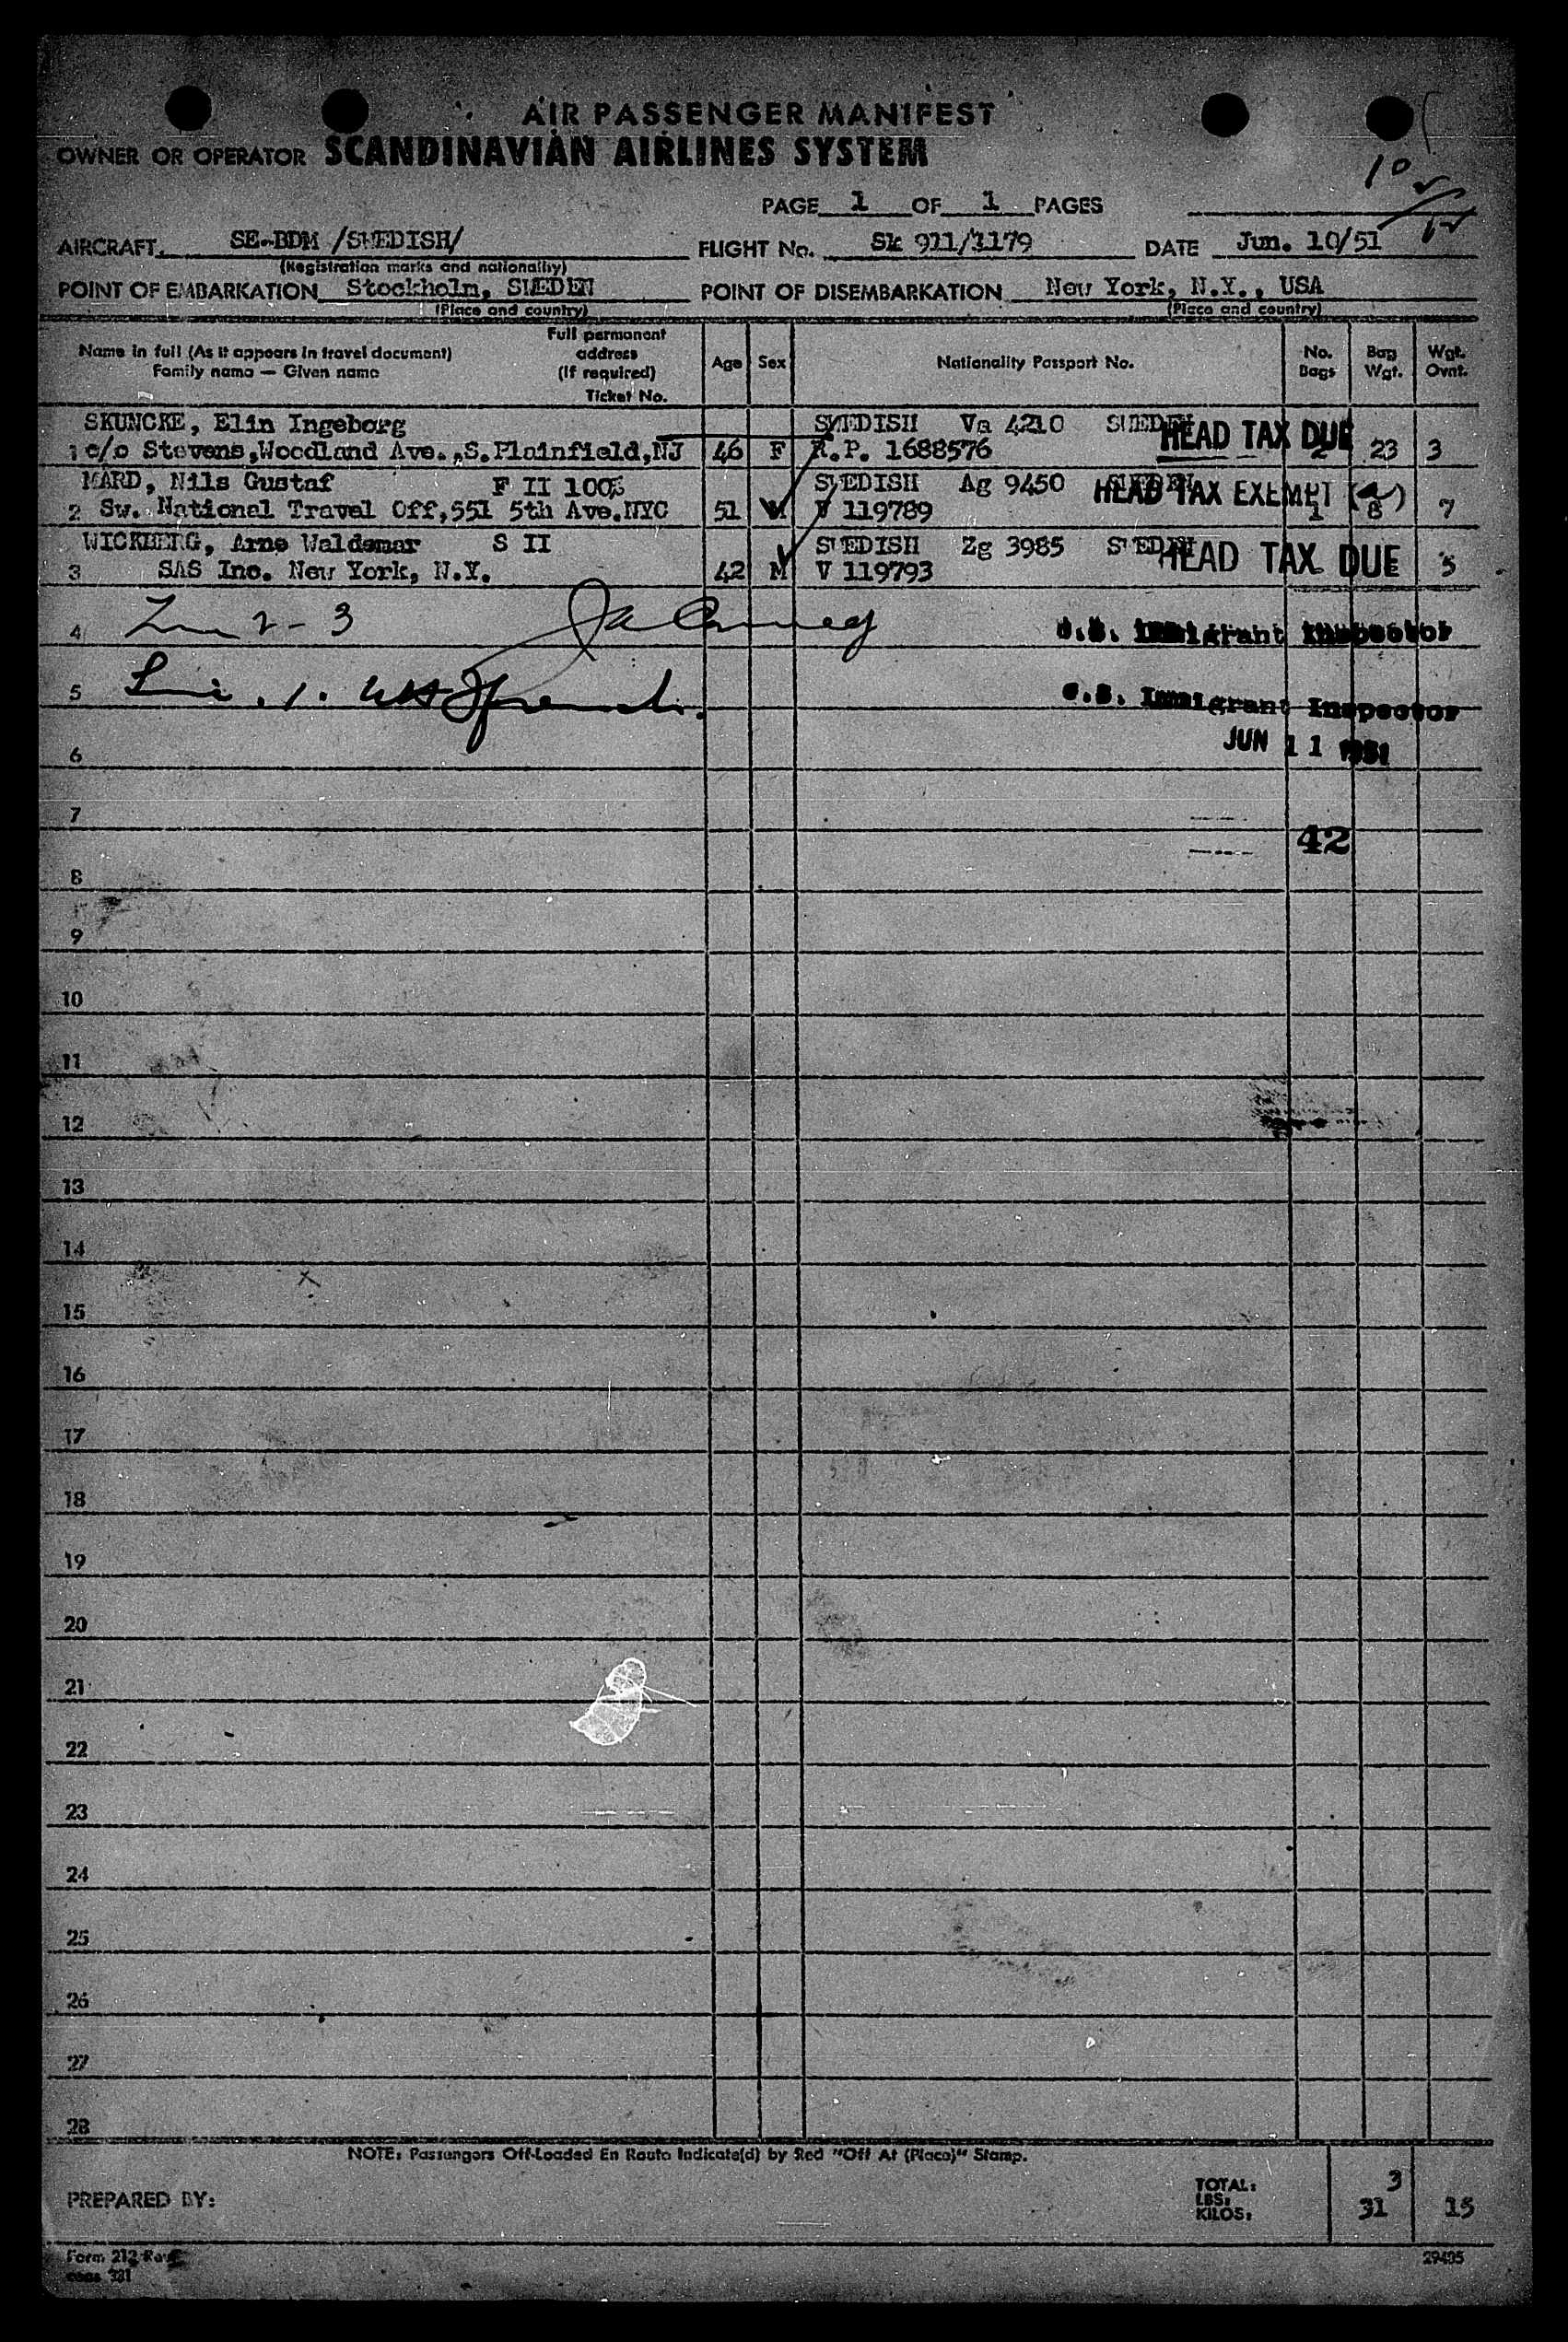 AIR PASSENGER MANIFEST
OWNER OR OPERATOR SCANDINAVIAN AIRLINES SYSTEM
10
PAGE 1 OF 1 PAGES
AIRCRAFT SE-BDM /SWEDISH/ FLIGHT No. Sk 911/1179 DATE Jun. 10/51
(Registration marks and nationality)
POINT OF EMBARKATION Stockholm, SWEDEN POINT OF DISEMBARKATION New York, N.Y., USA
(Place and country) (Place and country)
Name in full (As it appears in travel document)
Family name — Given name
Full permanent
address
(If required)
Ticket No.
Age Sex Nationality Passport No. No. Bags Bag Wgt. Wgt. Ovnt.
SKUNCKE, Elin Ingeborg SWEDISH Va 4210 SWEDEN HEAD TAX DUE
1 c/o Stevens,Woodland Ave.,S.Plainfield,NJ 46 F R.P. 1688576 2 23 3
MARD, Nils Gustaf F II 100% SWEDISH Ag 9450 SWEDEN HEAD TAX EXEMPT
2 Sw. National Travel Off,551 5th Ave.NYC 51 M V 119789 1 8 7
WICKBERG, Arne Waldemar S II SWEDISH Zg 3985 SWEDEN HEAD TAX DUE
3 SAS Inc. New York, N.Y. 42 M V 119793 5
4 2-3 U.S. Immigrant Inspector
5 1. U.S. Immigrant Inspector
JUN 11 1951
6
7
42
8
9
10
11
12
13
14
15
16
17
18
19
20
21
22
23
24
25
26
27
28
NOTE: Passengers Off-Loaded En Route Indicate(d) by Red "Off At (Place)" Stamp.
PREPARED BY:
TOTAL: 3
LBS:
KILOS: 31 15
Form 212 Rev
cons 331
29405